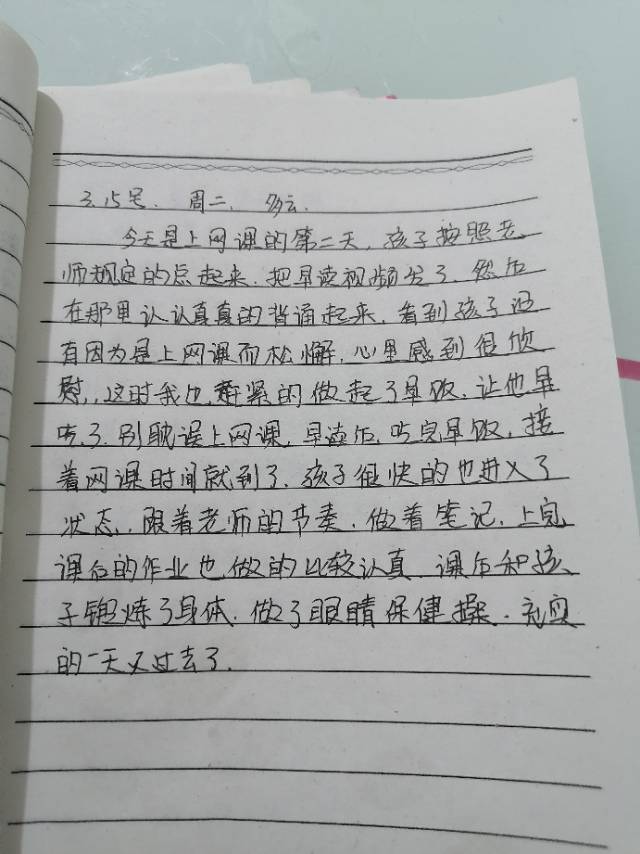 3.15号. 周二. 多云.
今天是上网课的第二天, 孩子按照老
师规定的点起来. 把早读视频发了. 然后
在那里认认真真的背诵起来. 看到孩子没
有因为是上网课而松懈. 心里感到很欣
慰, 这时我也赶紧的做起了早饭. 让他早
吃了. 别耽误上网课, 早读后, 吃完早饭, 接
着网课时间就到了. 孩子很快的也进入了
状态, 跟着老师的节奏. 做着笔记. 上完
课后的作业也做的比较认真. 课后和孩
子锻炼了身体. 做了眼睛保健操. 充实
的一天又过去了.